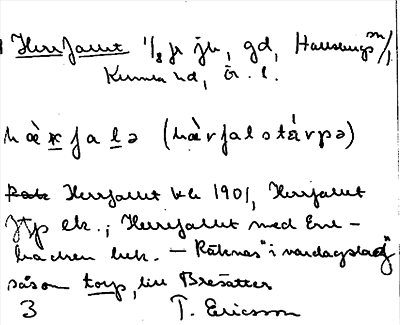 Herrfallet 1/8 fr jk, gd, Hallsbergs m/,
Kumla hd, Ör. l.
hæ̀r fa l ə (hæ̀rfalstárpə)
Herrfallet 1901, Herrfallet
Jfp ek.; Herrfallet med Ene-
backen bek. — "Räknas" i vardagslag"
såsom torp, till Bresätter
3 T. Ericsson